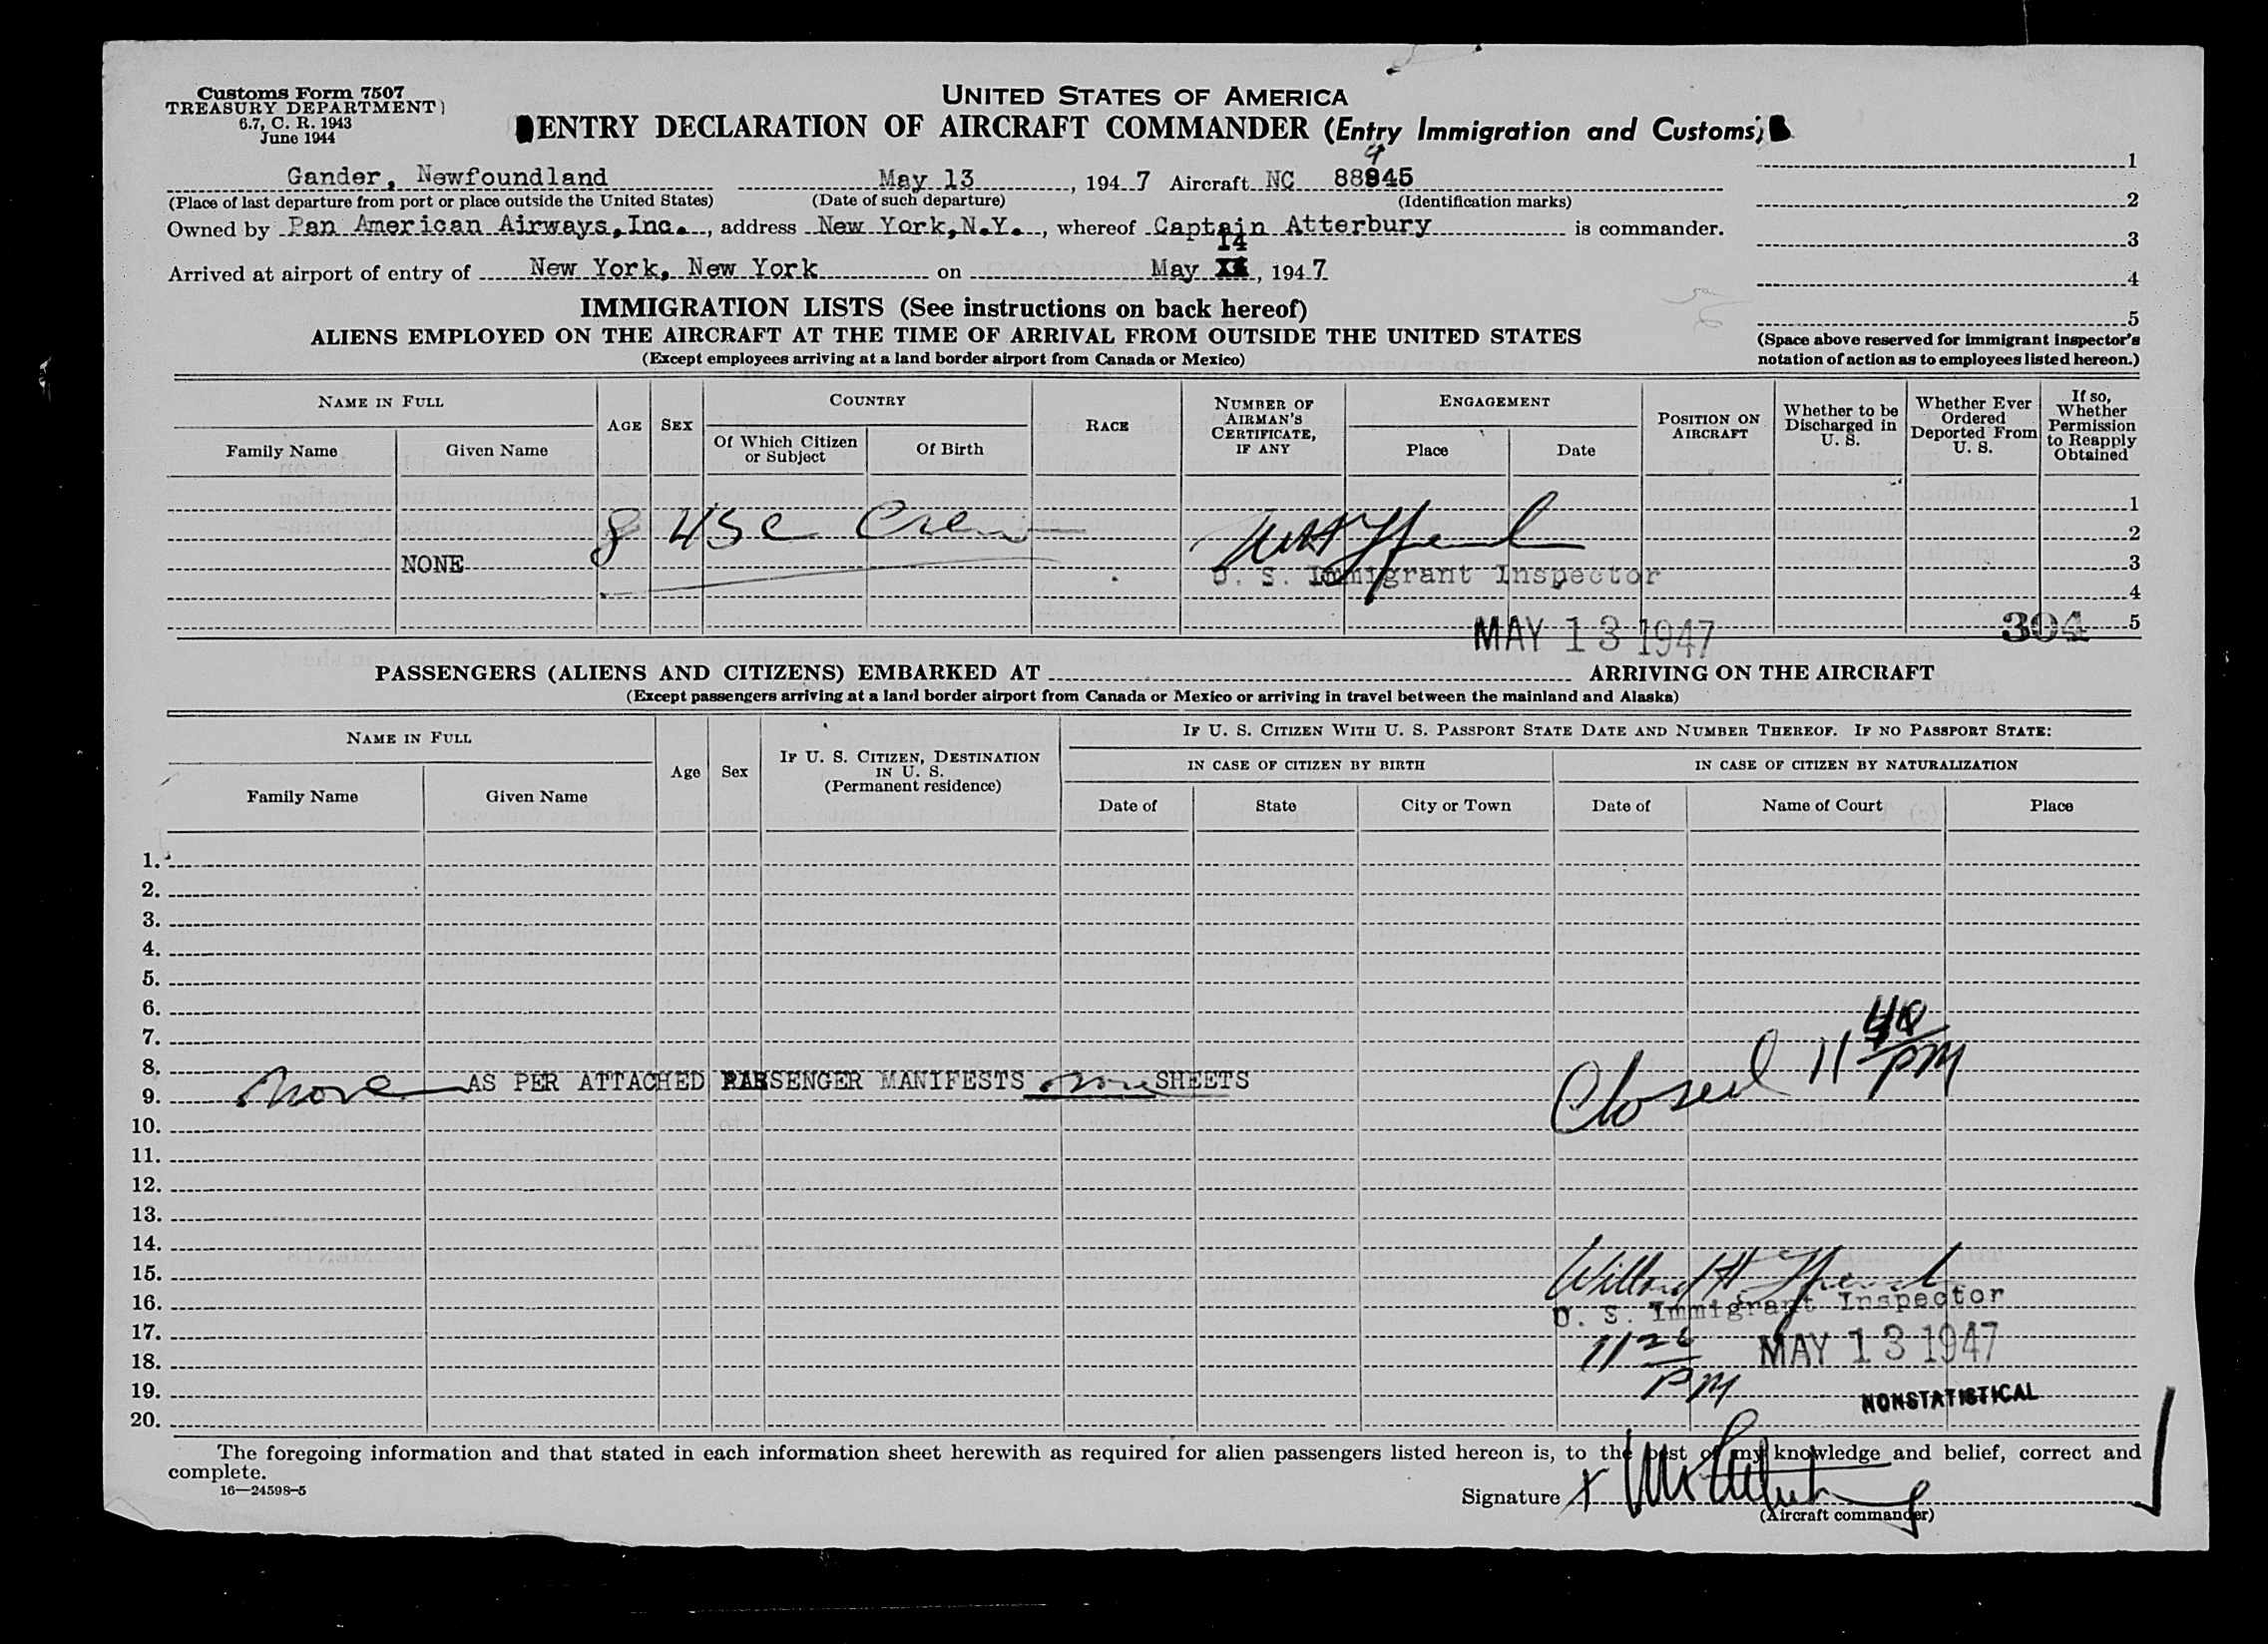 Customs Form 7507
TREASURY DEPARTMENT)
6.7, C. R. 1943
June 1944
UNITED STATES OF AMERICA
ENTRY DECLARATION OF AIRCRAFT COMMANDER (Entry Immigration and Customs)
1
2
3
4
5
(Space above reserved for immigrant inspector's notation of action as to employees listed hereon.)
4
Gander, Newfoundland May 13, 1947 Aircraft NC 88845
(Place of last departure from port or place outside the United States) (Date of such departure) (Identification marks)
Owned by Pan American Airways, Inc., address New York, N.Y., whereof Captain Atterbury is commander.
14
Arrived at airport of entry of New York, New York on May, 1947
IMMIGRATION LISTS (See instructions on back hereof)
ALIENS EMPLOYED ON THE AIRCRAFT AT THE TIME OF ARRIVAL FROM OUTSIDE THE UNITED STATES
(Except employees arriving at a land border airport from Canada or Mexico)
NAME IN FULL
Family Name
Given Name
AGE
SEX
COUNTRY
Of Which Citizen or Subject
Of Birth
RACE
NUMBER OF AIRMAN'S CERTIFICATE, IF ANY
ENGAGEMENT
Place
Date
POSITION ON AIRCRAFT
Whether to be Discharged in U. S.
Whether Ever Ordered Deported From U. S.
If so, Whether Permission to Reapply Obtained
1
8 USC Crew
2
NONE
3
U. S. Immigrant Inspector
4
MAY 13 1947
304
5
PASSENGERS (ALIENS AND CITIZENS) EMBARKED AT ARRIVING ON THE AIRCRAFT
(Except passengers arriving at a land border airport from Canada or Mexico or arriving in travel between the mainland and Alaska)
NAME IN FULL
Family Name
Given Name
Age
Sex
IF U. S. CITIZEN, DESTINATION IN U. S.
(Permanent residence)
IF U. S. CITIZEN WITH U. S. PASSPORT STATE DATE AND NUMBER THEREOF. IF NO PASSPORT STATE:
IN CASE OF CITIZEN BY BIRTH
Date of
State
City or Town
IN CASE OF CITIZEN BY NATURALIZATION
Date of
Name of Court
Place
1.
2.
3.
4.
5.
6.
7.
8.
None AS PER ATTACHED PASSENGER MANIFESTS none SHEETS
Closed 11 40 PM
9.
10.
11.
12.
13.
14.
15.
Willard H.
16.
U. S. Immigrant Inspector
17.
11 PM MAY 13 1947
18.
19.
NONSTATISTICAL
20.
The foregoing information and that stated in each information sheet herewith as required for alien passengers listed hereon is, to the best of my knowledge and belief, correct and
complete.
16—24598-5
Signature X
(Aircraft commander)